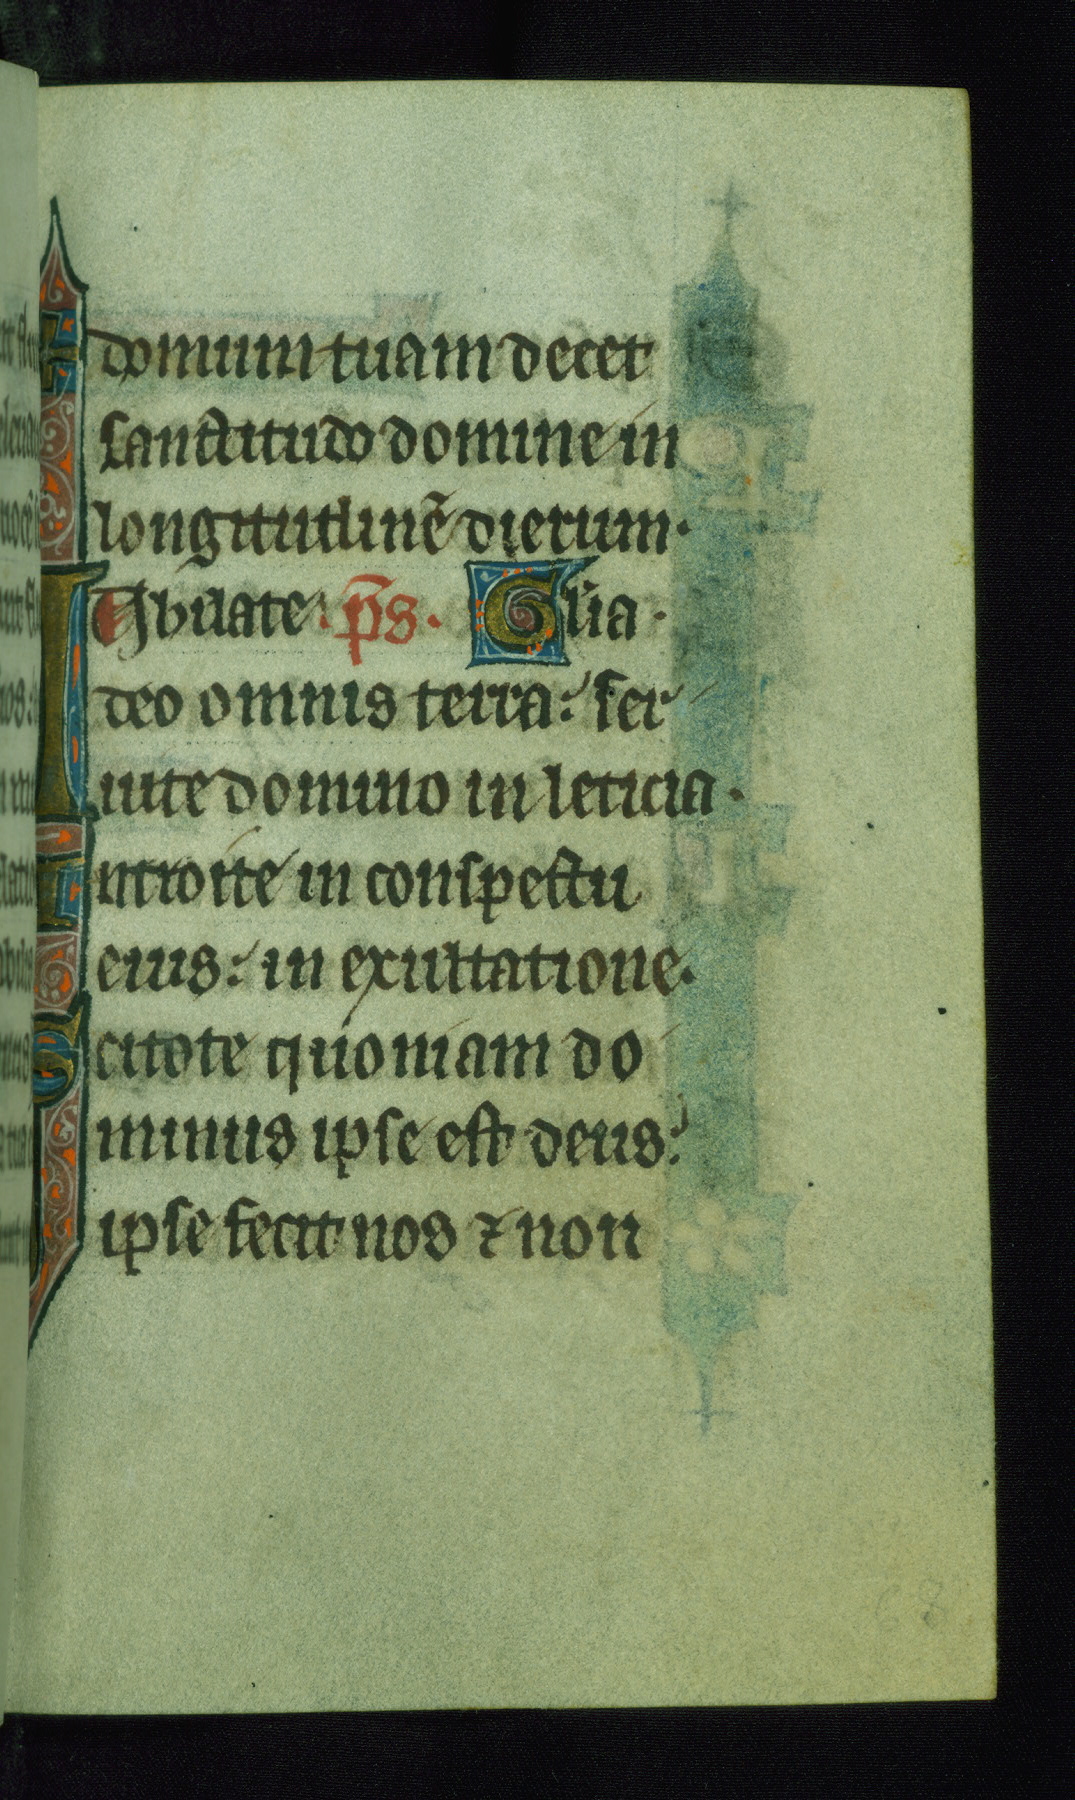 domum tuam decet
sanctitudo domine in
longitudinẽ dierum.
Iubilate. p̄s. Gl̄ia.
deo omnis terra: ser
uite domino in leticia.
Introite in conspectu
eius: in exultatione.
Scitote quoniam do
minus ipse est deus:
ipse fecit nos ⁊ non
68